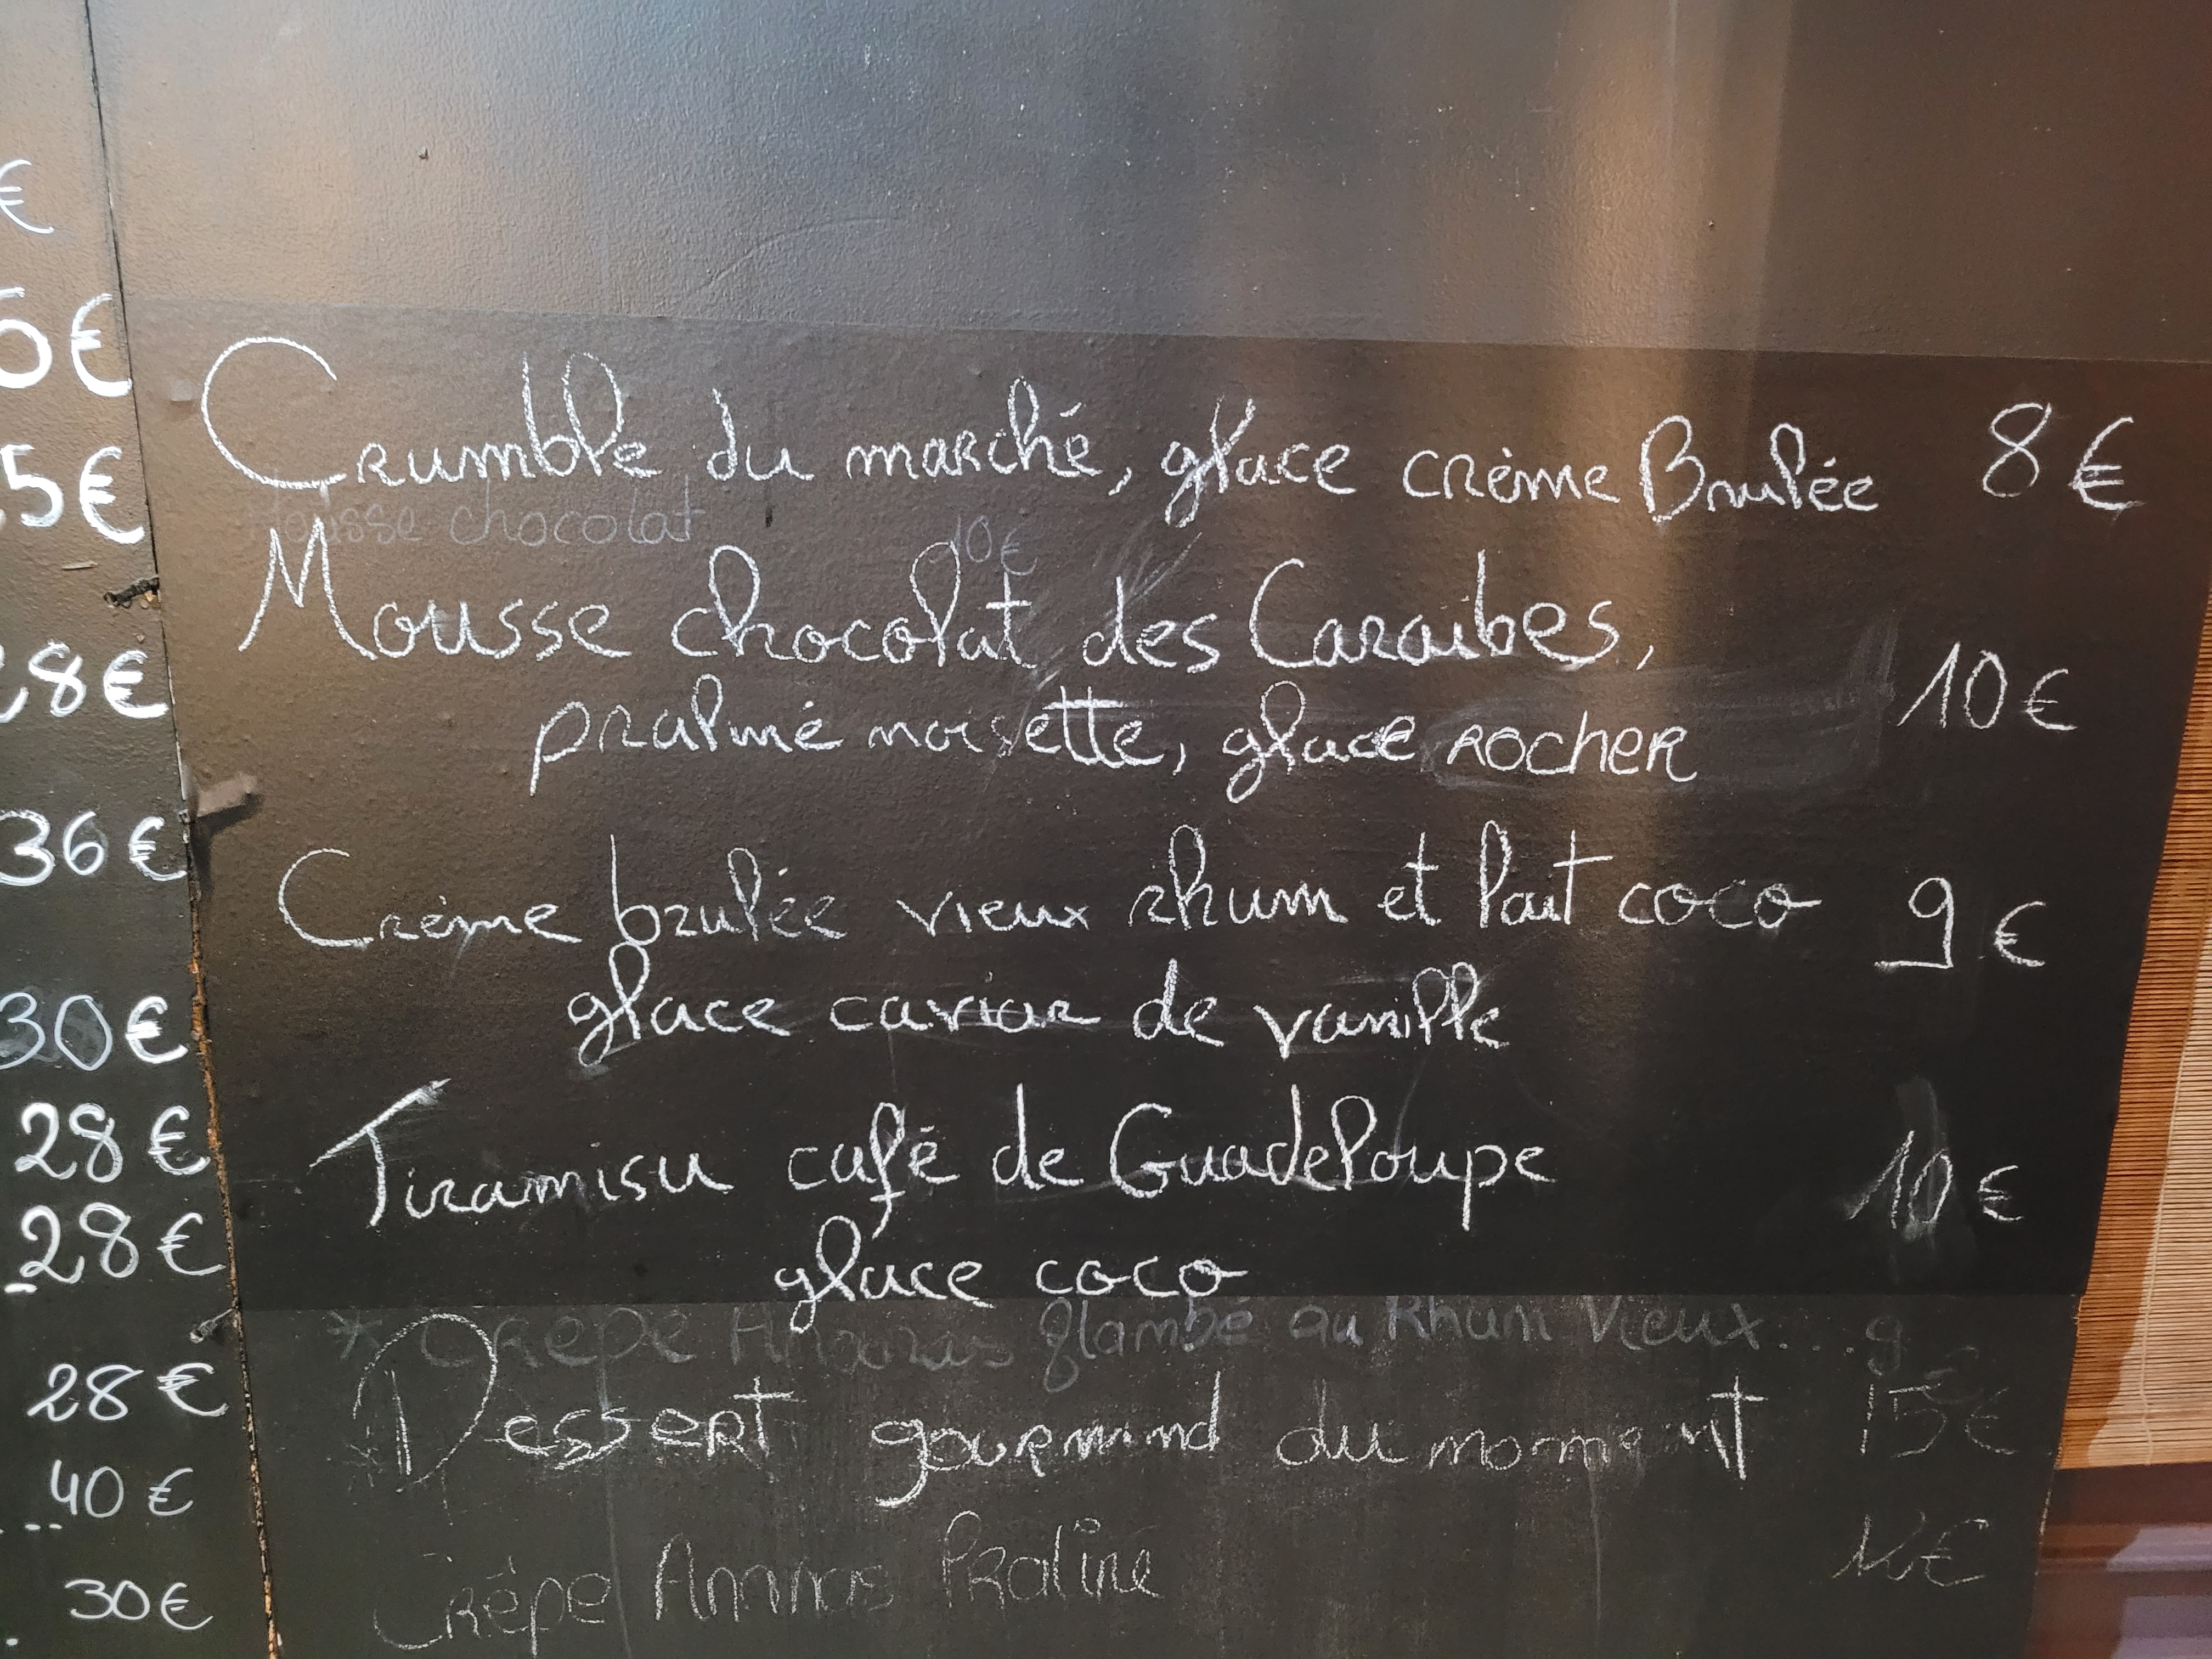 €
5€
5€
28€
36€
30€
28€
28€
28€
40€
30€
Crumble du marché, glace crème Brulée 8€
Mousse chocolat 10€
Mousse chocolat des Caraibes,
praliné noisette, glace ROCHER 10€
Crème brulée vieux rhum et lait coco 9€
glace caviar de vanille
Tiramisu café de Guadeloupe 10€
glace coco
* Crêpe flambé au Rhum Vieux....9
Dessert gourmand du moment 15€
Crêpe Praliné